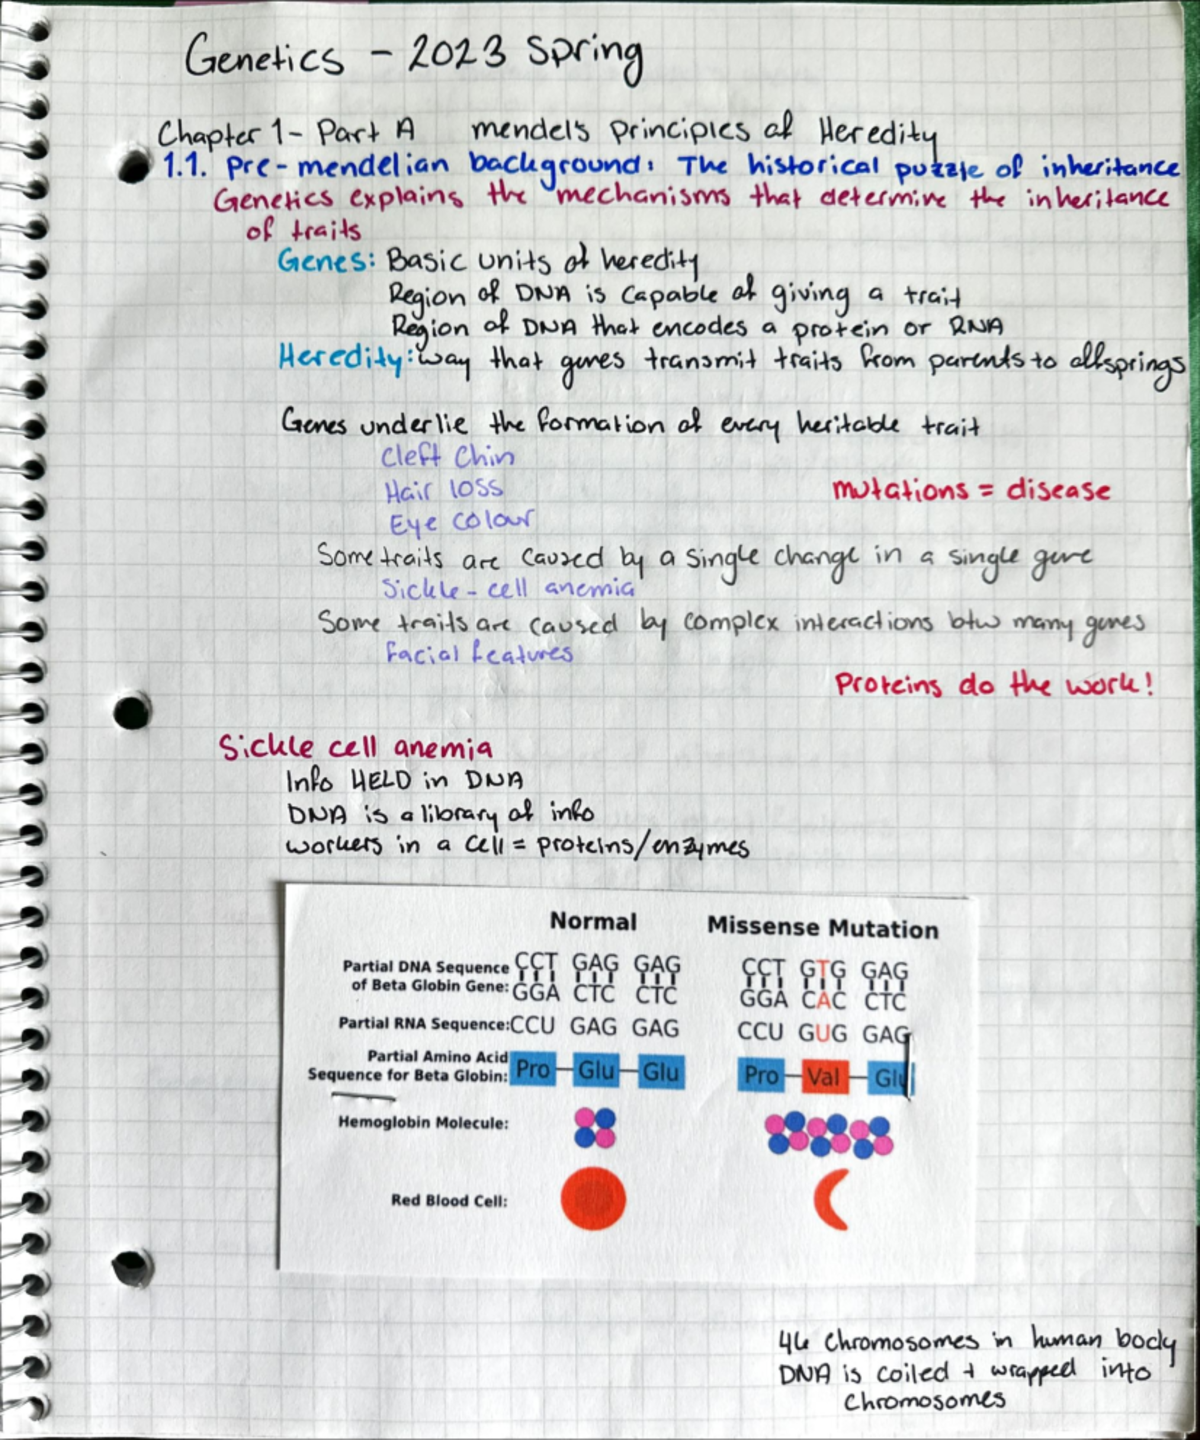 Genetics - 2023 Spring
Chapter 1 - Part A mendel's principles of Heredity
1.1. Pre-mendelian background: The historical puzzle of inheritance
Genetics explains the mechanisms that determine the inheritance
of traits
Genes: Basic units of heredity
Region of DNA is capable of giving a trait
Region of DNA that encodes a protein or RNA
Heredity: way that genes transmit traits from parents to offsprings
Genes underlie the formation of every heritable trait
Cleft Chin
Hair loss
mutations = disease
Eye colour
Some traits are caused by a single change in a single gene
Sickle-cell anemia
Some traits are caused by complex interactions btw many genes
facial features
Proteins do the work!
Sickle cell anemia
Info HELD in DNA
DNA is a library of info
workers in a cell = proteins/enzymes
Normal Missense Mutation
Partial DNA Sequence CCT GAG GAG CCT GTG GAG
of Beta Globin Gene: GGA CTC CTC GGA CAC CTC
Partial RNA Sequence: CCU GAG GAG CCU GUG GAG
Partial Amino Acid
Sequence for Beta Globin: Pro Glu Glu Pro Val Glu
Hemoglobin Molecule:
Red Blood Cell:
46 chromosomes in human body
DNA is coiled + wrapped into
chromosomes